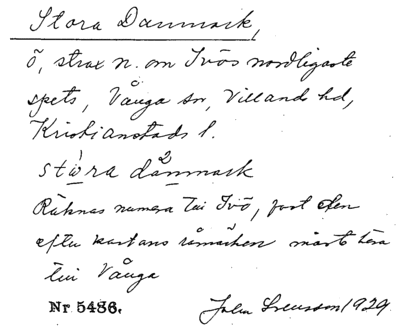 Stora Danmark,
ö, strax n. om Ivös nordligaste
spets, Vånga sn, Villands hd,
Kristianstads l.
stωra då2nmark
Räknas numera till Ivö, fast den
efter kartans råmärken måste höra
till Vånga
Nr 5486. John Svensson 1929